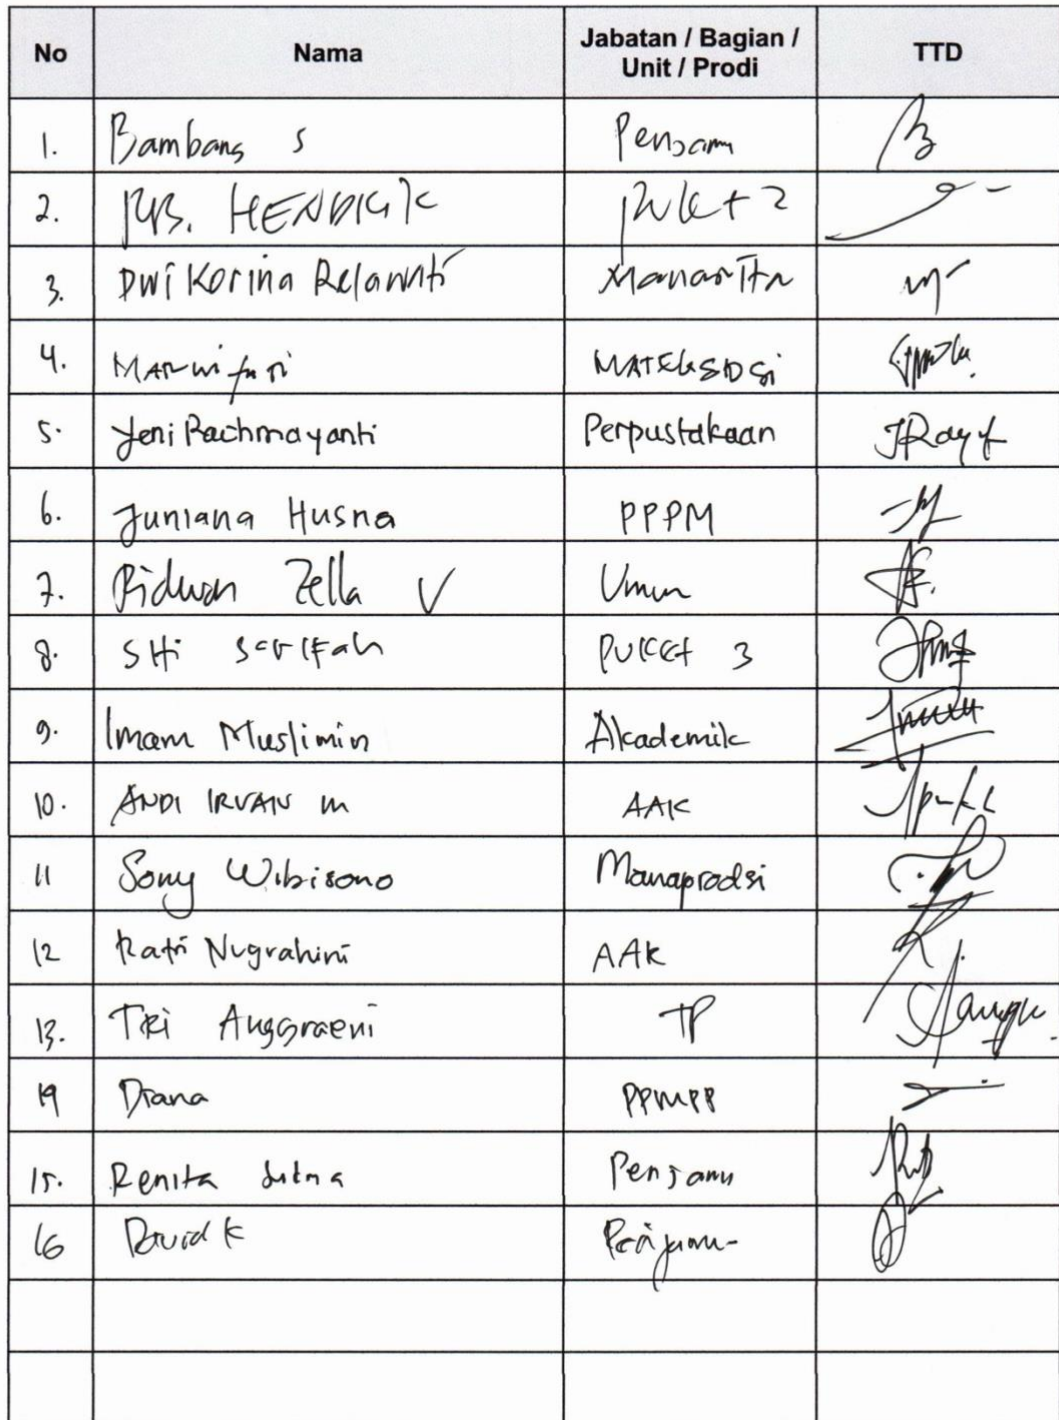 No Nama Jabatan / Bagian / Unit / Prodi TTD
1. Bambang S Penjam
2. RB. HENDRIK Puket 2
3. Dwi Korina Relawati
4.
5. Yeni Rachmayanti Perpustakaan
6. Juniana Husna PPPM
7. Ridwan Zella V Umum
8. Siti Puket 3
9. Imam Muslimin Akademik
10. ANDI IRVAN M AAK
11 Sony Wibisono Manaprodsi
12 Ratri Nugrahini AAK
13. TRI Anggraeni TP
14 Diana PPMPP
15. Renita Penjamu
16 David K Penjamu